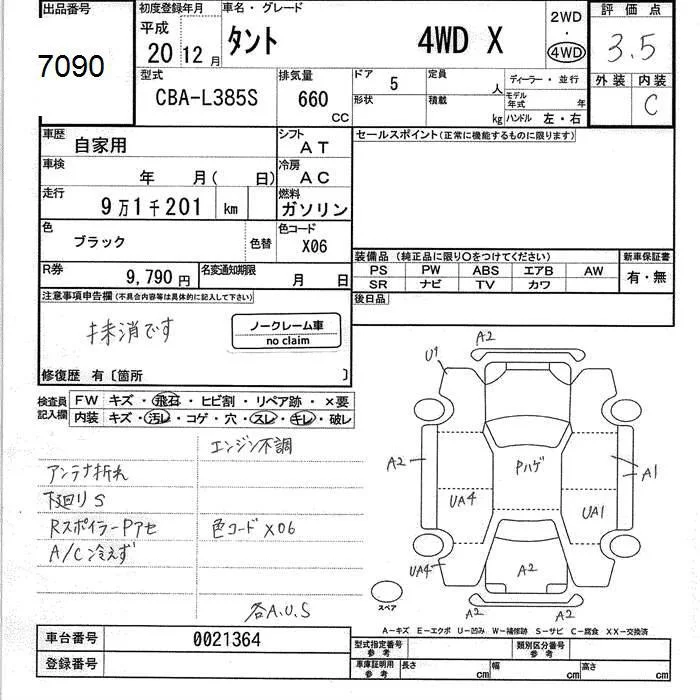 出品番号
7090
初度登録年月
平成
20 12月
車名・グレード
タント 4WD X
2WD
・
4WD
評価点
3.5
外装 内装
C
型式
CBA-L385S
排気量
660
CC
ドア 5
形状
定員 人
積載 kg
ディーラー・並行
モデル年式 年
ハンドル 左・右
車歴
自家用
シフト
AT
車検
年 月( 日)
冷房
AC
走行
9万1千201 km
燃料
ガソリン
色
ブラック
色替
色コード
X06
R券
9,790円
名変通知期限
月 日
セールスポイント(正常に機能するものに限ります)
装備品 (純正品に限り○をつけてください)
PS PW ABS エアB AW
SR ナビ TV カワ
新車保証書
有・無
後日品
注意事項申告欄(不具合内容等は具体的に記入して下さい)
抹消です
ノークレーム車
no claim
修復歴 有〔箇所 〕
検査員
記入欄
FW キズ・飛石・ヒビ割・リペア跡・×要
内装 キズ・汚レ・コゲ・穴・スレ・キレ・破レ
エンジン不調
アンテナ折れ
下廻りS
RスポイラーPアセ
色コードX06
A/C冷えず
各A.U.S
A2
U1
A2
Pハゲ
A1
UA4
UA1
UA4
A2
A2
A2
スペア
A-キズ E-エクボ U-凹み W-補修跡 S-サビ C-腐食 XX-交換済
車台番号 0021364
登録番号
型式指定番号
参考
類別区分番号
参考
車庫証明用
参考
長さ cm 幅 cm 高さ cm